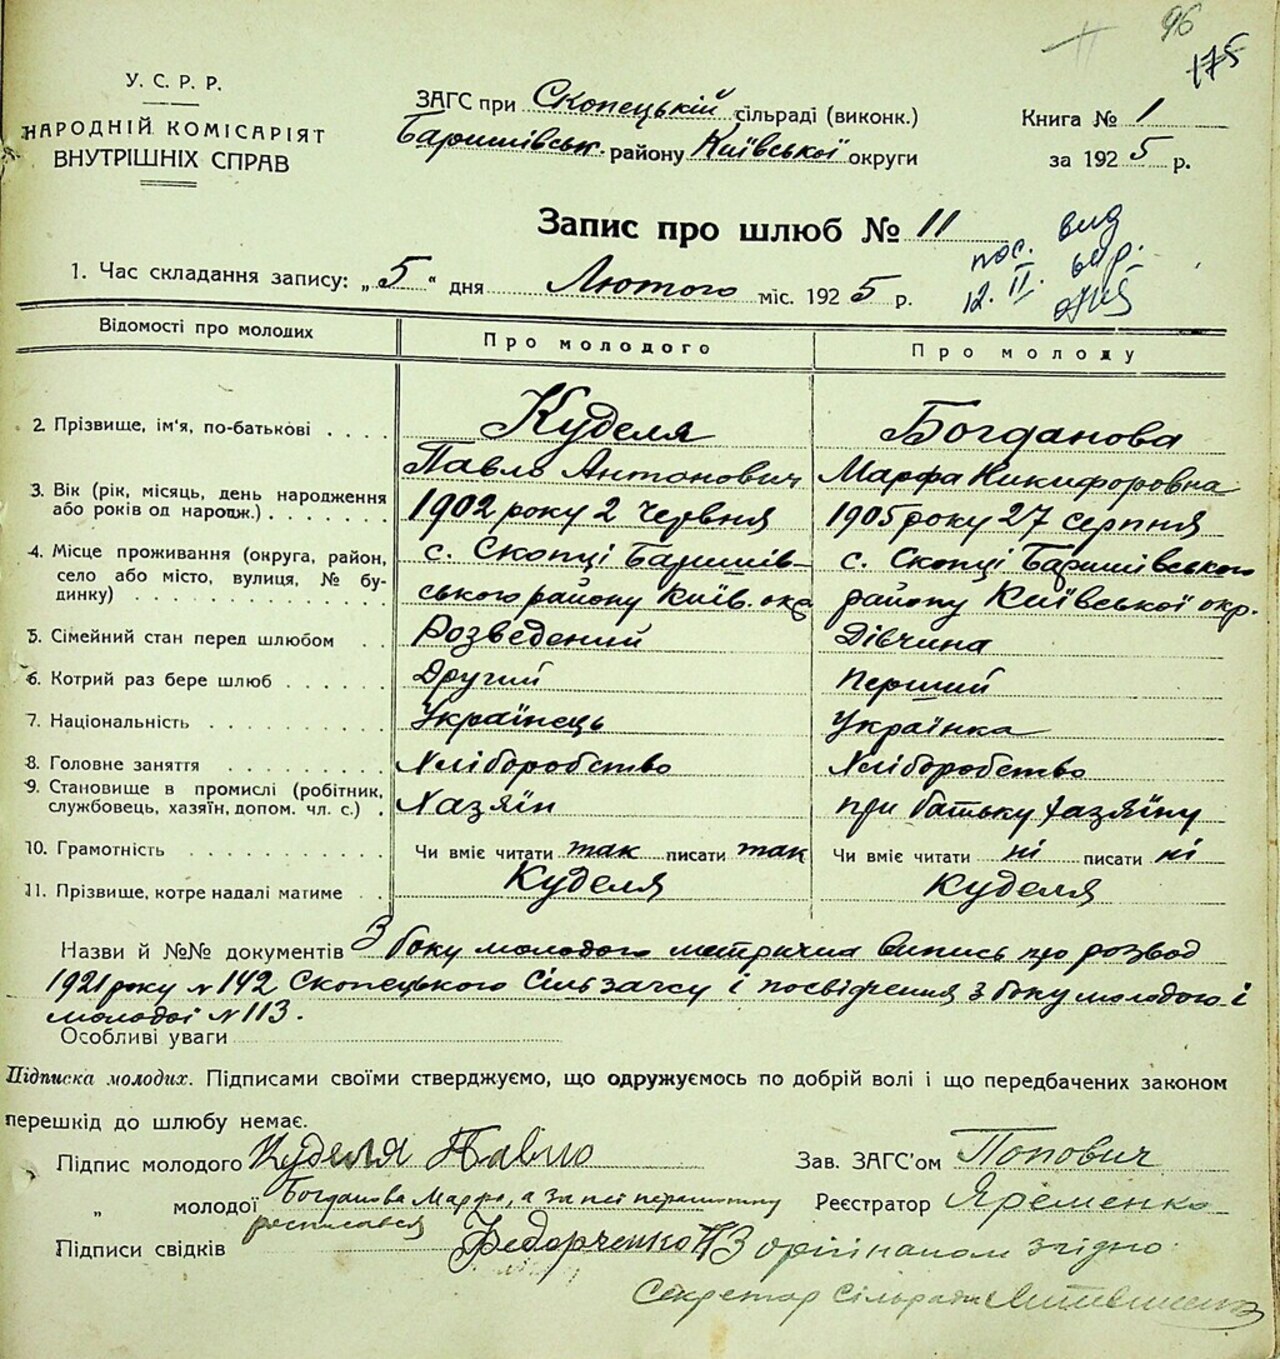 96
175
У. С. Р. Р.
НАРОДНІЙ КОМІСАРІЯТ
ВНУТРІШНІХ СПРАВ
ЗАГС при Скопецькій сільраді (виконк.)
Баришівськ. району Київської округи
Книга № 1
за 1925 р.
Запис про шлюб № 11
пос. вид
12. II.
1. Час складання запису: „5" дня Лютого міс. 1925 р.
Відомості про молодих
Про молодого
Про молоду
2. Прізвище, ім'я, по-батькові . . . .
Куделя
Павло Антонович
Богданова
Марфа Никифоровна
3. Вік (рік, місяць, день народження
або років од народж.) . . . . . . .
1902 року 2 червня
1905 року 27 серпня
4. Місце проживання (округа, район,
село або місто, вулиця, № бу-
динку) . . . . . . . . . . . . . .
с. Скопці Баришів-
ського району Київ. окр
с. Скопці Баришівського
району Київської окр.
5. Сімейний стан перед шлюбом . .
Розведений
Дівчина
6. Котрий раз бере шлюб . . . . . .
Другий
Перший
7. Національність . . . . . . . . .
Українець
Українка
8. Головне заняття . . . . . . . .
Хліборобство
Хліборобство
9. Становище в промислі (робітник,
службовець, хазяїн, допом. чл. с.) .
Хазяїн
при батьку хазяїну
10. Грамотність . . . . . . . . . .
Чи вміє читати так писати так
Чи вміє читати ні писати ні
11. Прізвище, котре надалі матиме . .
Куделя
Куделя
Назви й №№ документів З боку молодого метрична випись про розвод
1921 року № 142 Скопецького Сільзагсу і посвідчення з боку молодого і
молодої № 113.
Особливі уваги
Підписка молодих. Підписами своїми стверджуємо, що одружуємось по добрій волі і що передбачених законом
перешкід до шлюбу немає.
Підпис молодого Куделя Павло
Зав. ЗАГС'ом Попович
„ молодої Богданова Марфа, а за неї неграмотну
росписався
Реєстратор Яременко
Підписи свідків Федорченко
З орігіналом згідно
Секретар Сільради